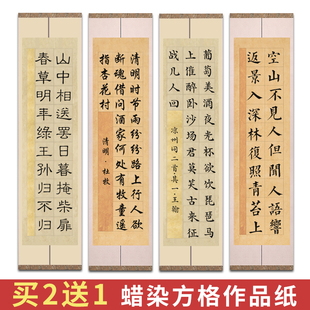 山中相送罢日暮掩柴扉
春草明年绿王孙归不归
清明时节雨纷纷路上行人欲
断魂借问酒家何处有牧童遥
指杏花村
清明·杜牧
葡萄美酒夜光杯欲饮琵琶马
上催醉卧沙场君莫笑古来征
战几人回
凉州词二首其一·王翰
空山不见人但闻人语響
返景入深林復照青苔上
买2送1 蜡染方格作品纸